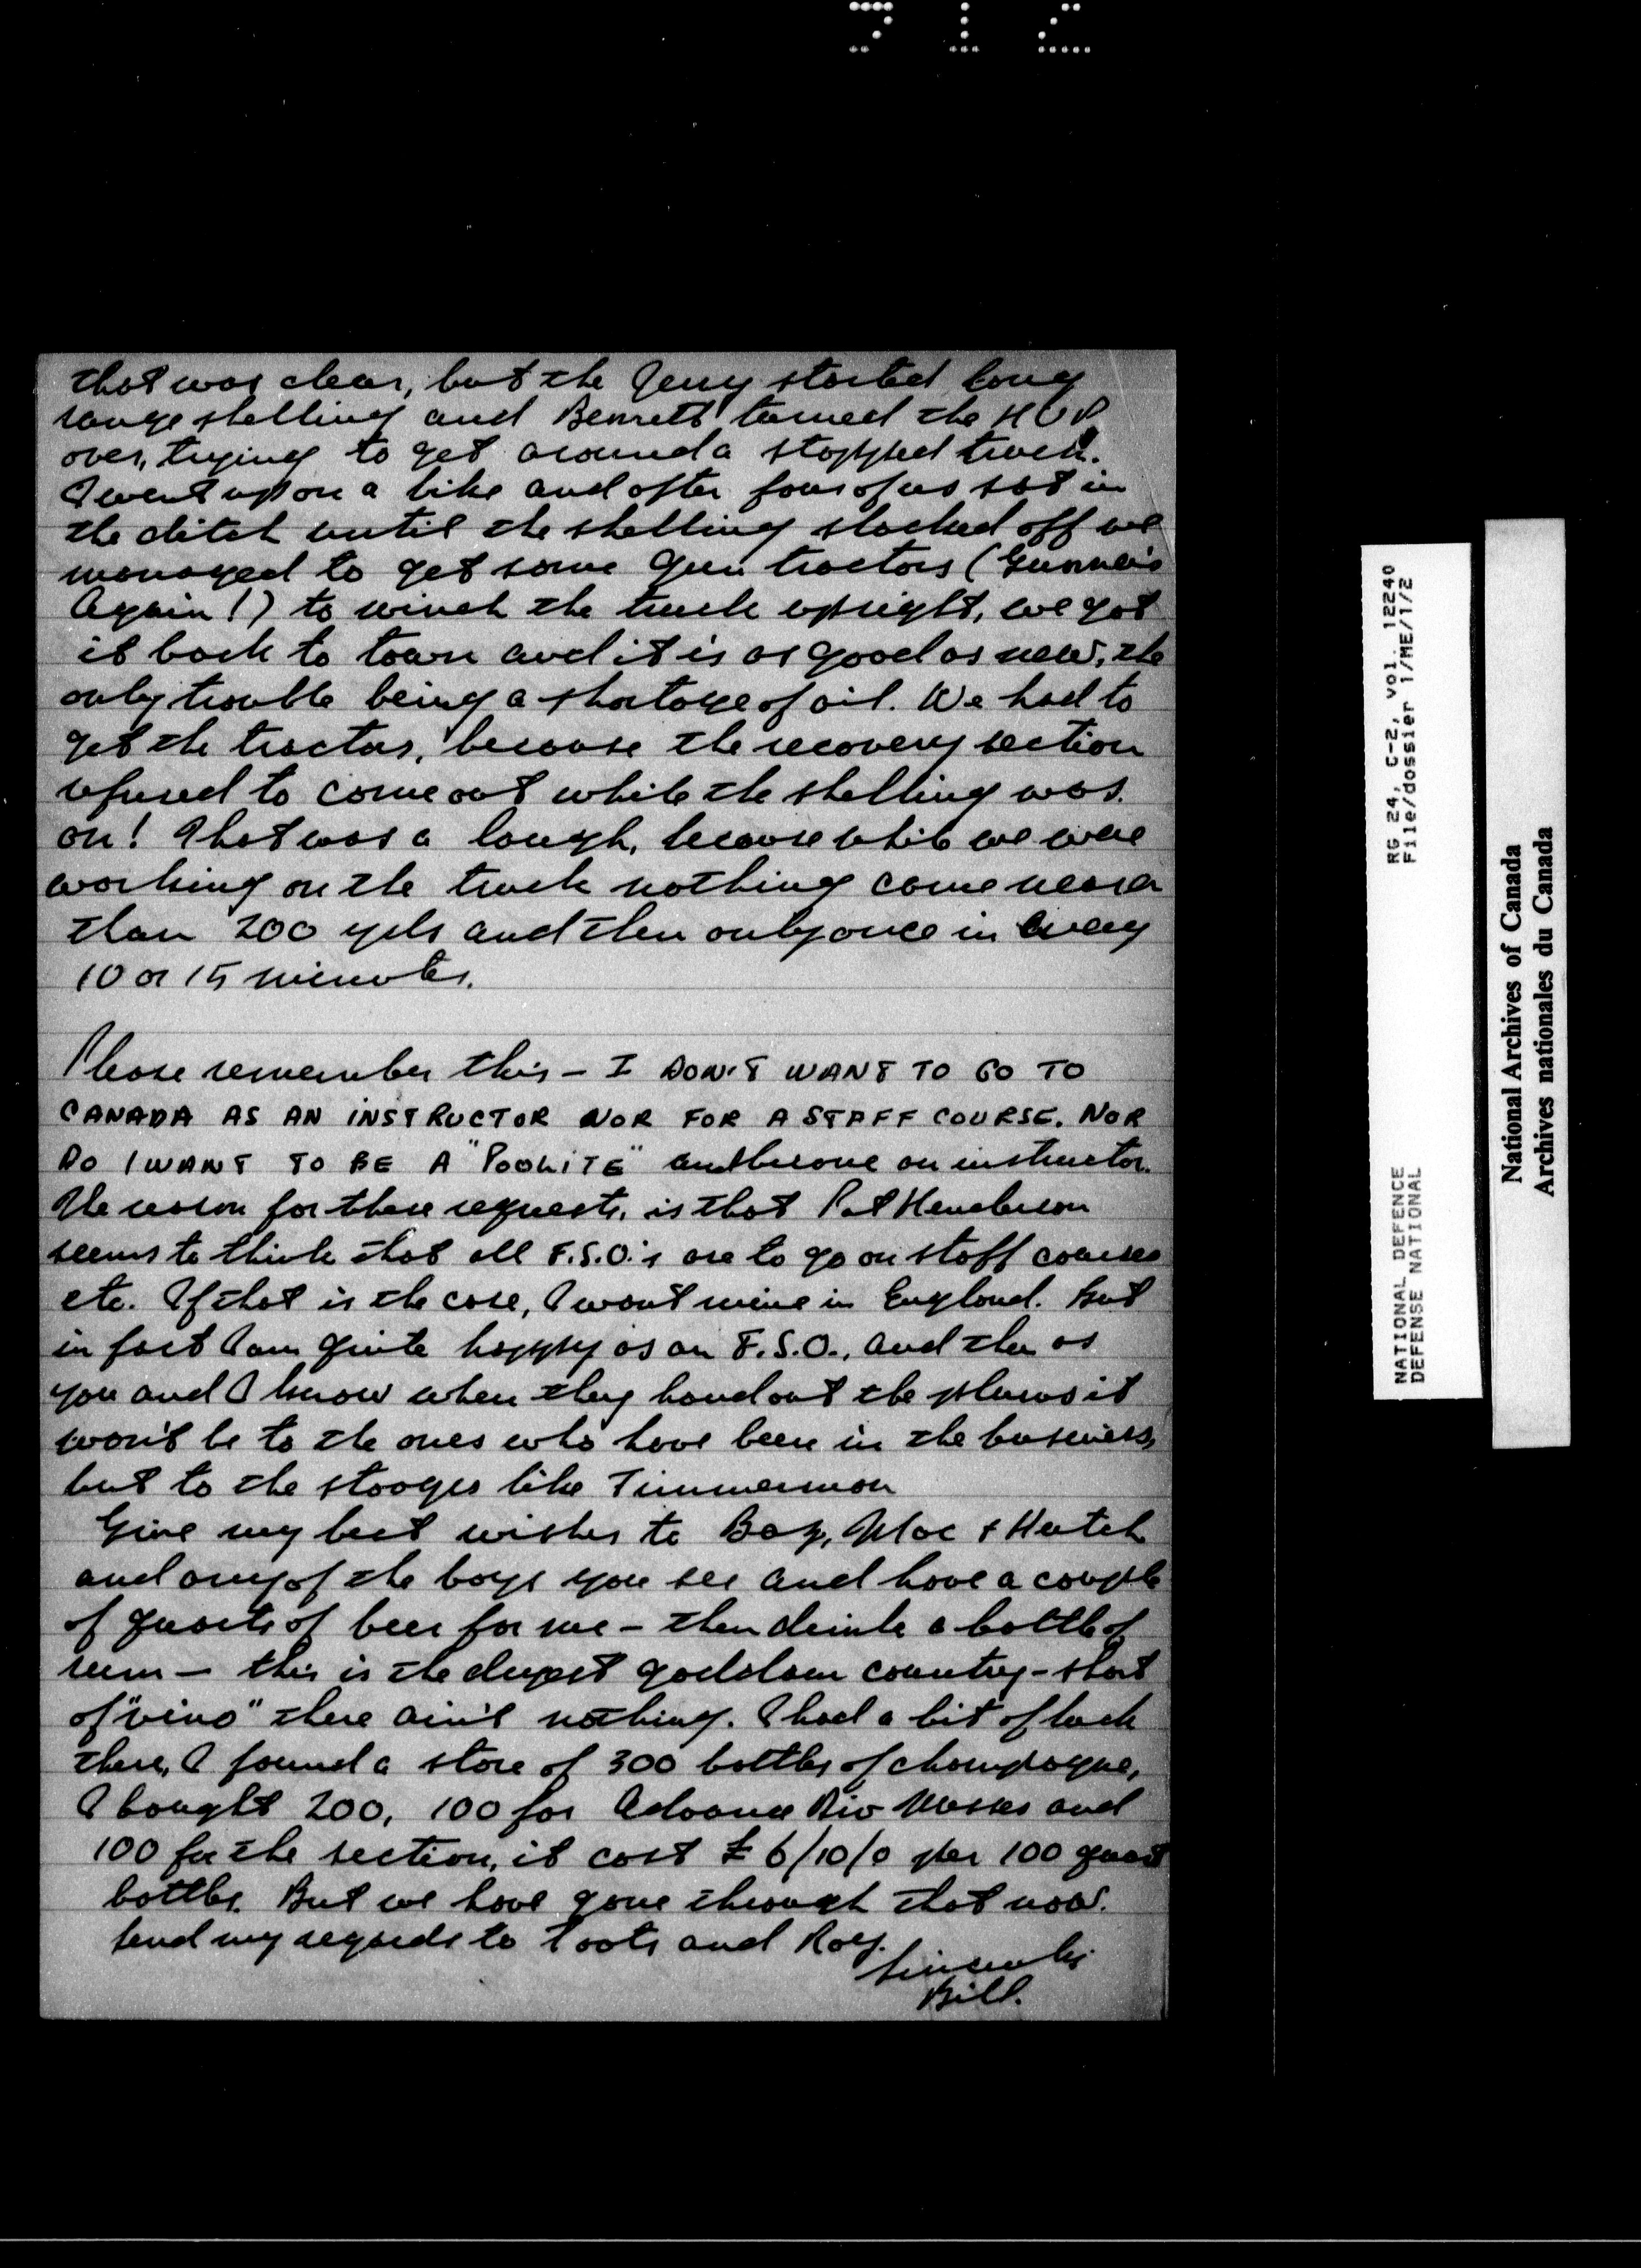 that was clear, but the Jerry started long
range shelling and Bennett turned the HUP
over, trying to get around a stopped truck.
I went up on a bike and after four of us sat in
the ditch until the shelling slacked off we
managed to get some Gun tractors (Gunners
Again!) to winch the truck upright, we got
it back to town and it is as good as new, the
only trouble being a shortage of oil. We had to
get the tractors, because the recovery section
refused to come out while the shelling was
on! That was a laugh, because while we were
working on the truck nothing came nearer
than 200 yds and then only once in every
10 or 15 minutes.
Please remember this – I DON'T WANT TO GO TO
CANADA AS AN INSTRUCTOR NOR FOR A STAFF COURSE. NOR
DO I WANT TO BE A "POOLITE" and become an instructor.
The reason for these requests, is that Pat Henderson
seems to think that all F.S.O.'s are to go on staff courses
etc. If that is the case, I want mine in England. But
in fact I am quite happy as an F.S.O., and then as
you and I know when they hand out the plums it
won't be to the ones who have been in the business,
but to the stooges like Timmerman
Give my best wishes to Baz, Mac & Hutch
and any of the boys you see and have a couple
of quarts of beer for me – then drink a bottle of
rum – this is the dryest goddam country – short
of "vino" there ain't nothing. I had a bit of luck
there, I found a store of 300 bottles of champagne,
I bought 200, 100 for Advance Div Messes and
100 for the section, it cost £6/10/0 per 100 quart
bottles. But we have gone through that now.
Send my regards to Toots and Roy.
Sincerely
Bill.
RG 24, C-2, vol. 12240
File/dossier 1/ME/1/2
NATIONAL DEFENCE
DEFENSE NATIONAL
National Archives of Canada
Archives nationales du Canada